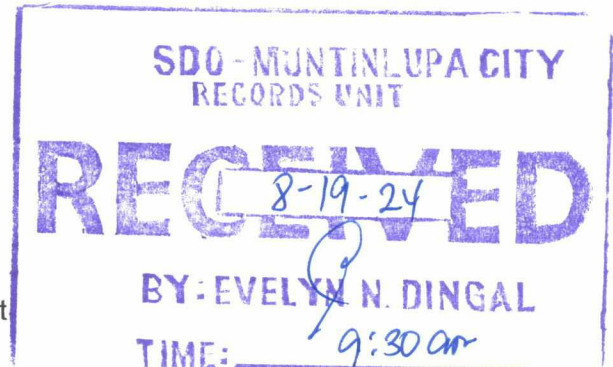 SDO-MUNTINLUPA CITY
RECORDS UNIT
RECEIVED
8-19-24
t
BY: EVELYN N. DINGAL
TIME: 9:30 am